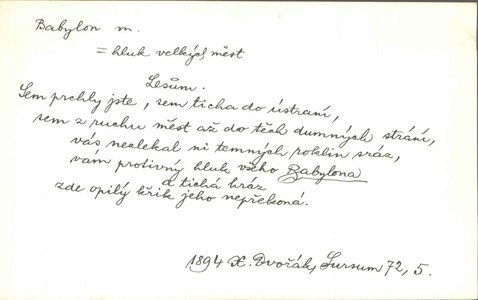 Babylon m.
= hluk velkých měst
Lesům.
Sem prchly jste, sem ticha do ústraní,
sem z ruchu měst až do těch dumných strání,
vás nezlekal ni temných roklin sráz,
vám protivný hluk všeho Babylona
a tichá hráz
zde opilý křik jeho nepřekoná.
1894 X. Dvořák, Sursum 72, 5.